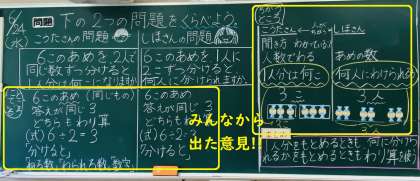 6/24
(水)
問題
下の2つの問題をくらべよう。
こうたさんの問題
6このあめを、2人で
同じ数ずつ分けると
しほさんの問題
6このあめを1人に
こずつ分けると
何人に分けられますか
6このあめ(同じもの)
答えが同じ 3
どちらもわり算
(式) 6÷2=3
「分けると」
6このあめ
答えが同じ 3
どちらもわり算
(式) 6÷2=3
「分けると」
ちがう
ところ
こうたさん
しほさん
聞き方
人数でわる
あめの数
1人分は何こ
何人にわけられる
3こ
3人
みんなから
出た意見!
1人分をもとめるときも何人に分けら
れるかをもとめるときもわり算を使う